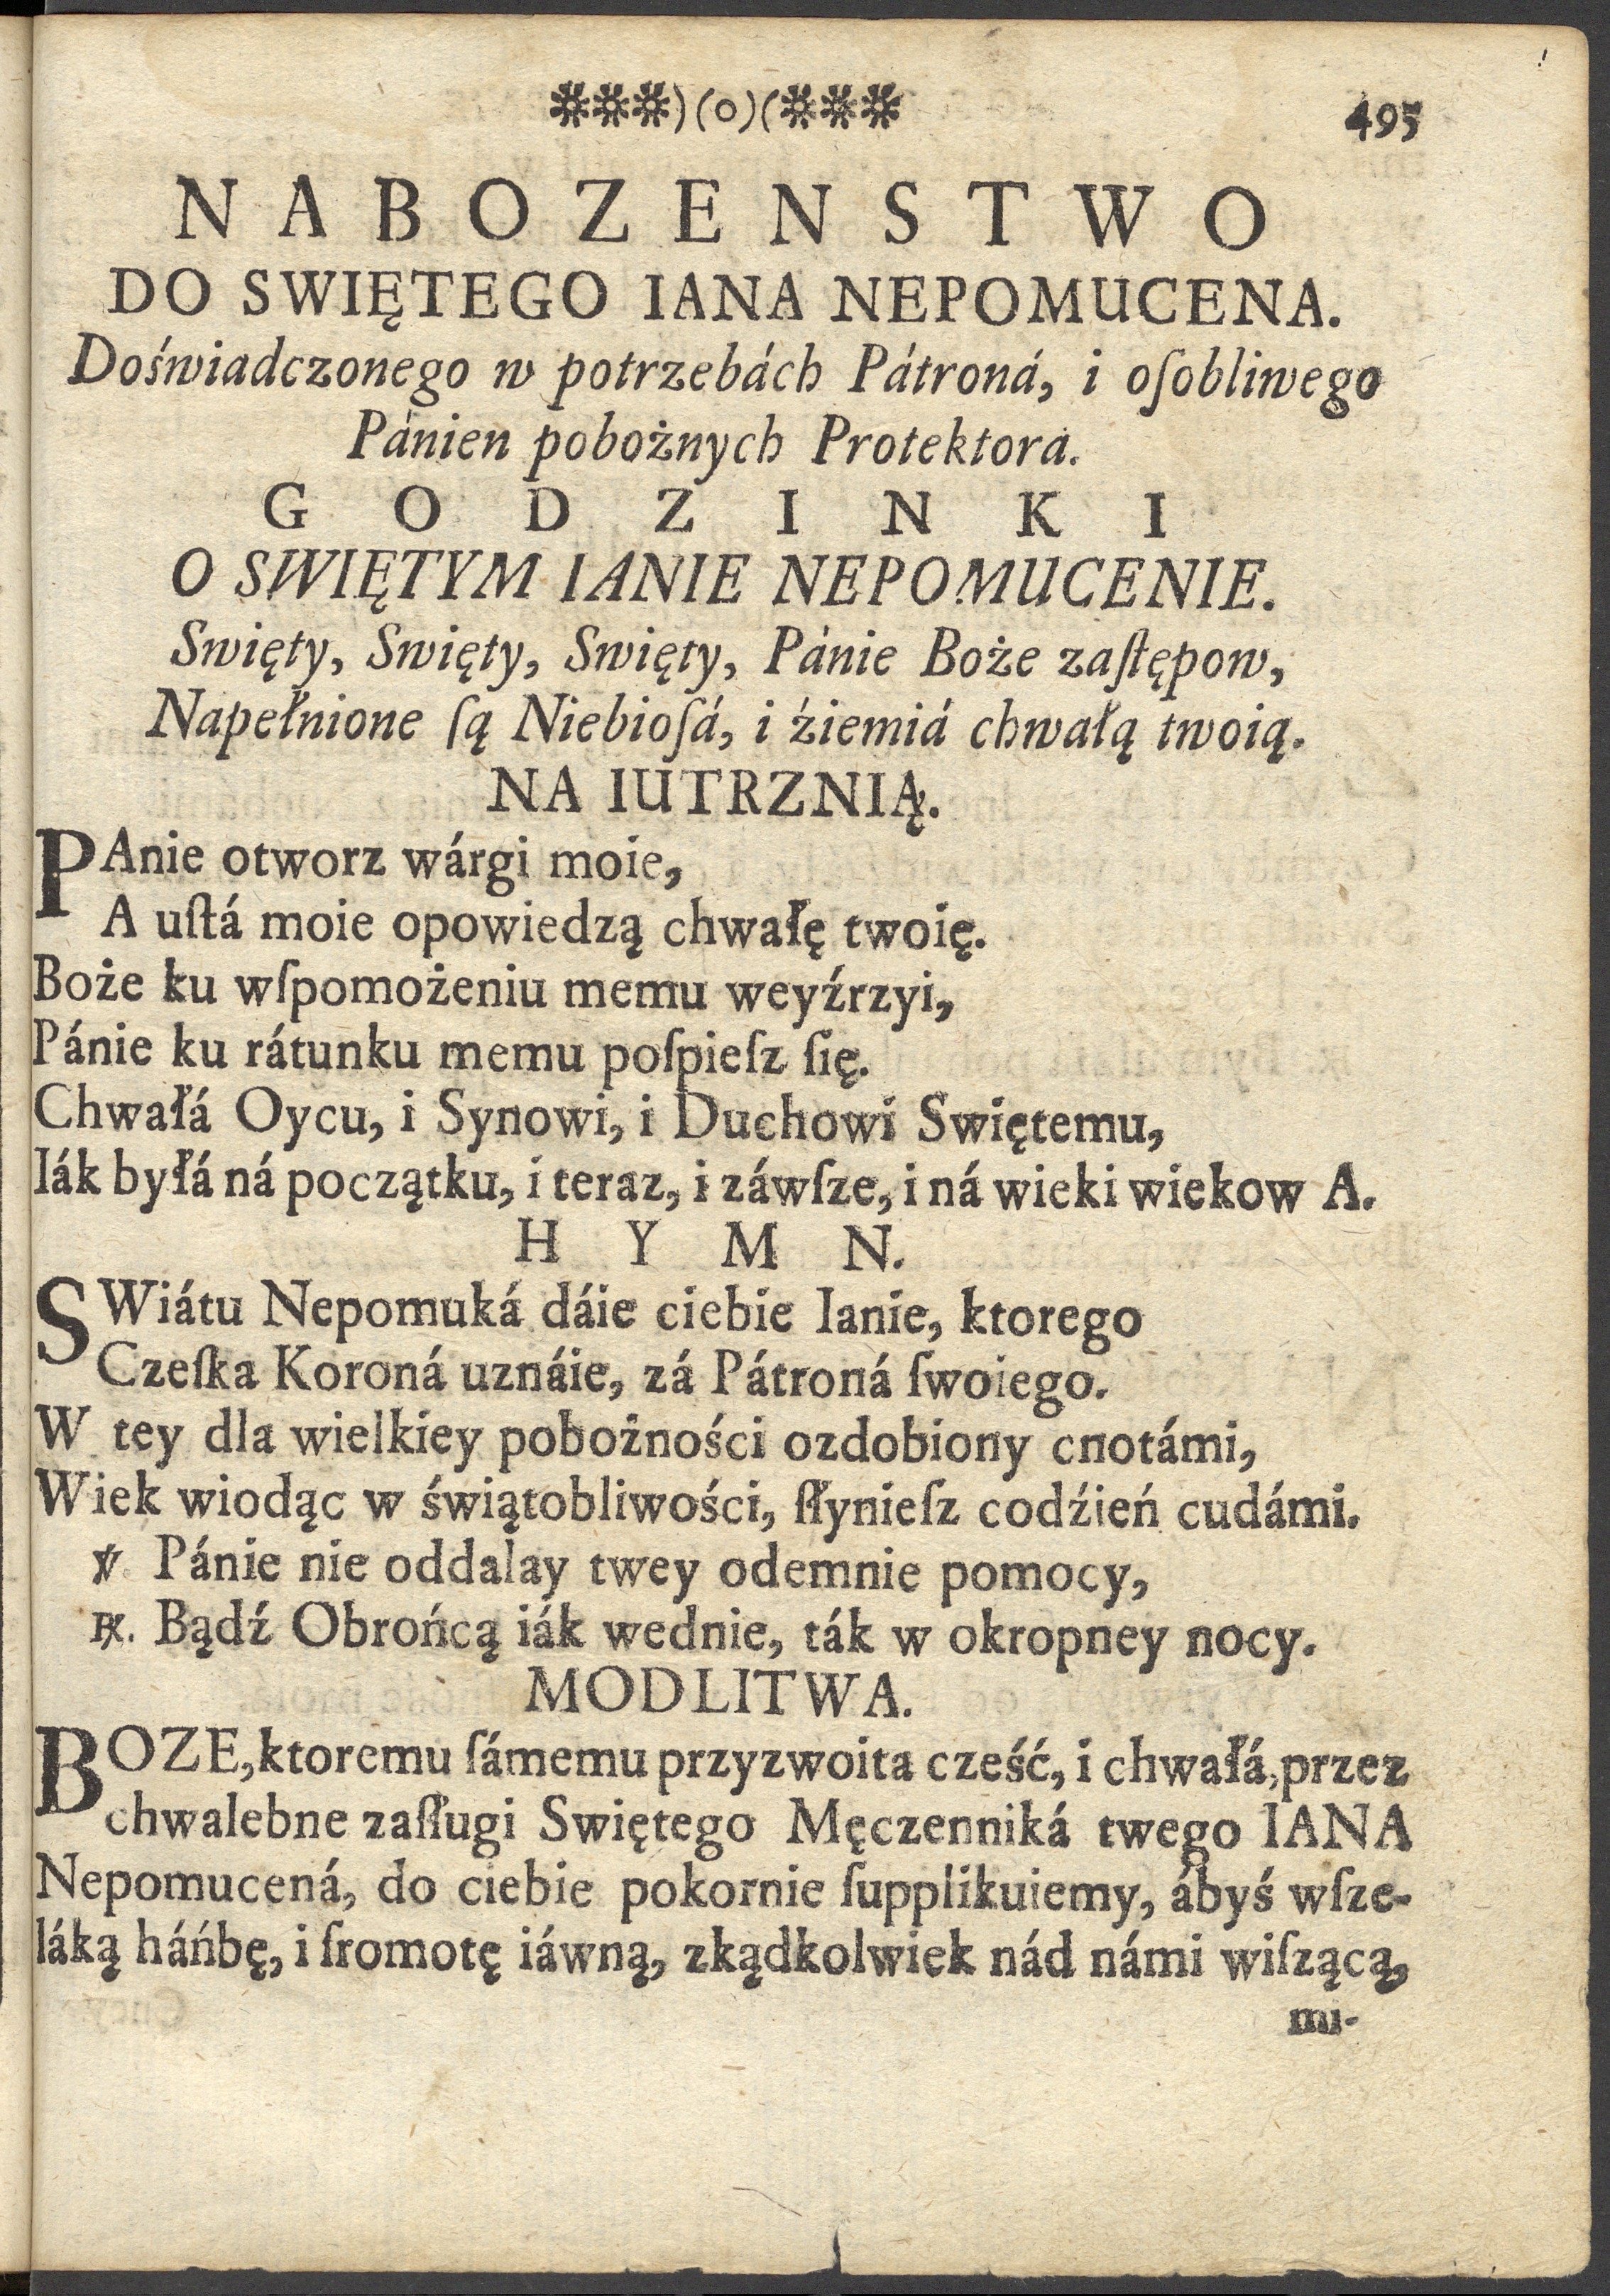 ***)(o)(*** 495
NABOZENSTWO
DO SWIĘTEGO IANA NEPOMUCENA.
Doświadczonego w potrzebách Pátroná, i oſobliwego
Pánien pobożnych Protektorá.
GODZINKI
O SWIĘTYM IANIE NEPOMUCENIE.
Swięty, Swięty, Swięty, Pánie Boże zaſtępow,
Napełnione ſą Niebioſá, i źiemiá chwałą twoią.
NA IUTRZNIĄ.
PAnie otworz wárgi moie,
A uſtá moie opowiedzą chwałę twoię.
Boże ku wſpomożeniu memu weyźrzyi,
Pánie ku rátunku memu poſpieſz ſię.
Chwałá Oycu, i Synowi, i Duchowi Swiętemu,
Iák byłá ná początku, i teraz, i záwſze, i ná wieki wiekow A.
HYMN.
SWiátu Nepomuká dáie ciebie Ianie, ktorego
Czeſka Koroná uznáie, zá Pátroná ſwoiego.
W tey dla wielkiey pobożności ozdobiony cnotámi,
Wiek wiodąc w świątobliwości, ſłynieſz codźień cudámi.
℣. Pánie nie oddalay twey odemnie pomocy,
℟. Bądź Obrońcą iák wednie, ták w okropney nocy.
MODLITWA.
BOZE, ktoremu ſámemu przyzwoita cześć, i chwałá, przez
chwalebne zaſługi Swiętego Męczenniká twego IANA
Nepomucená, do ciebie pokornie ſupplikuiemy, ábyś wſze-
láką háńbę, i ſromotę iáwną, zkądkolwiek nád námi wiſzącą,
mu-